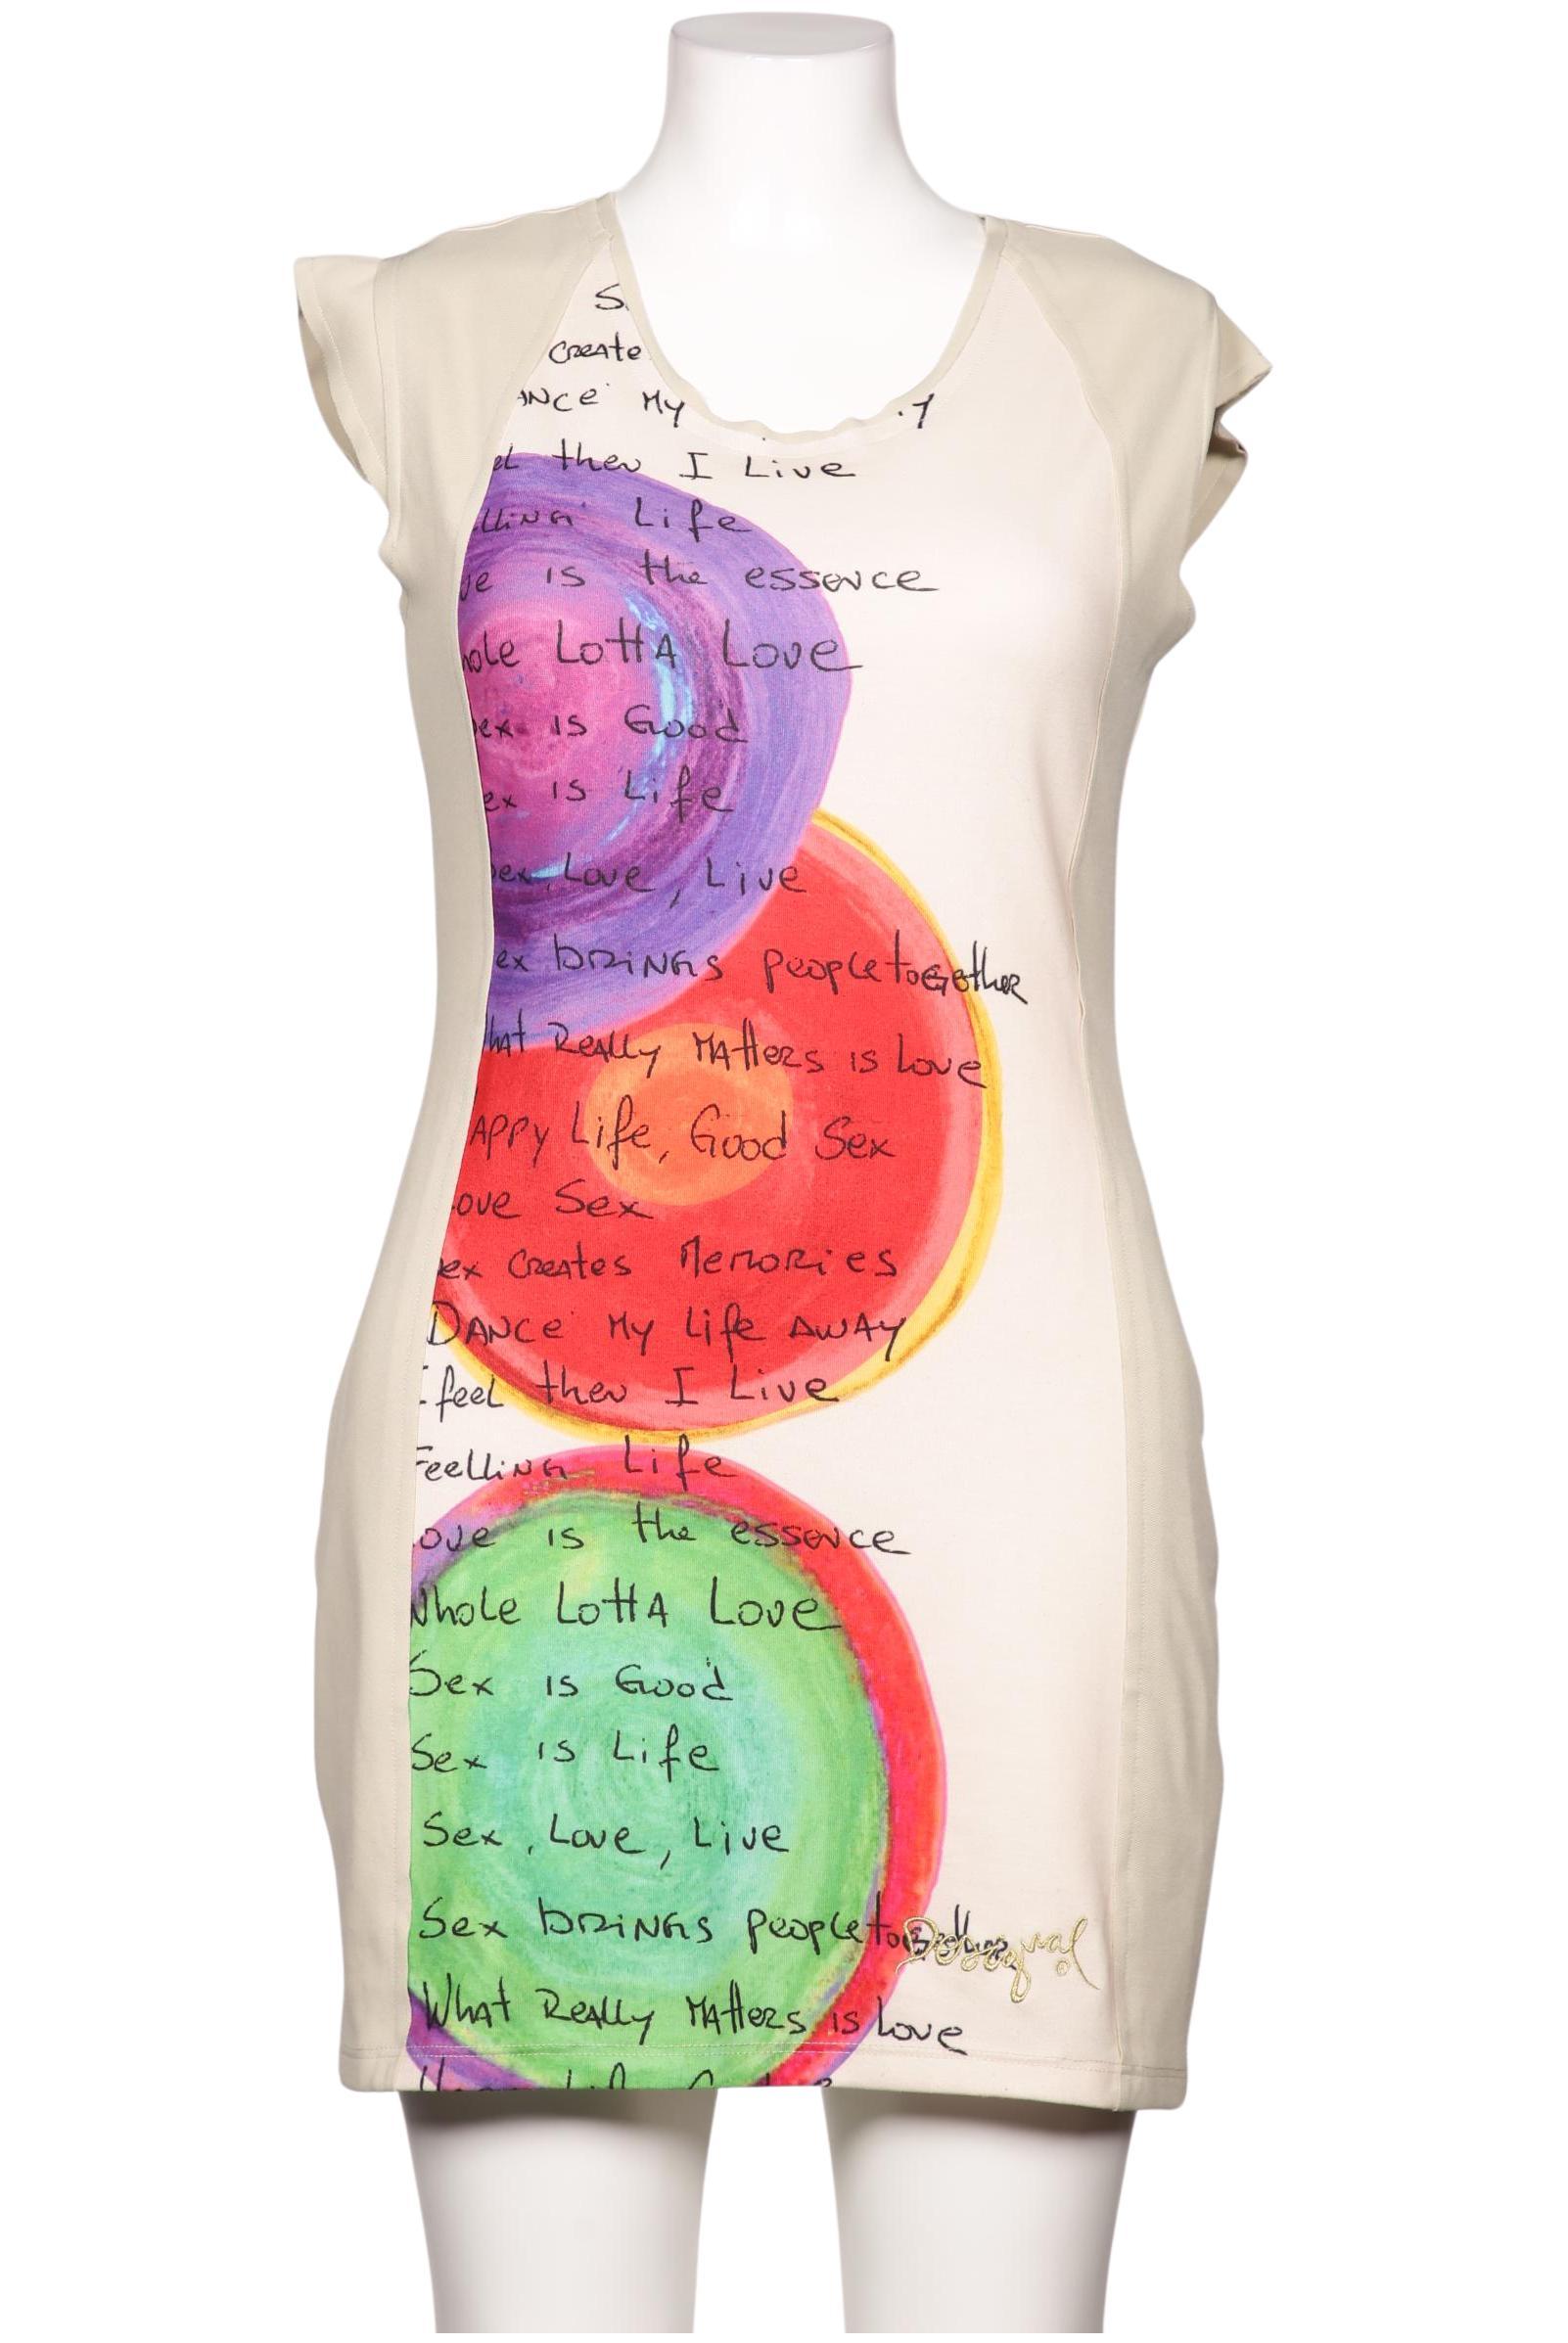 Create
My
then I Live
Life
is the essence
Lotta Love
is Good
is Life
Love, Live
brings people together
Really Matters is Love
Life, Good Sex
Sex
Creates Memories
Dance My Life Away
I feel then I Live
Feelling Life
is the essence
Whole Lotta Love
Sex is Good
Sex is Life
Sex, Love, Live
Sex brings people together
Desigual
What Really Matters is Love